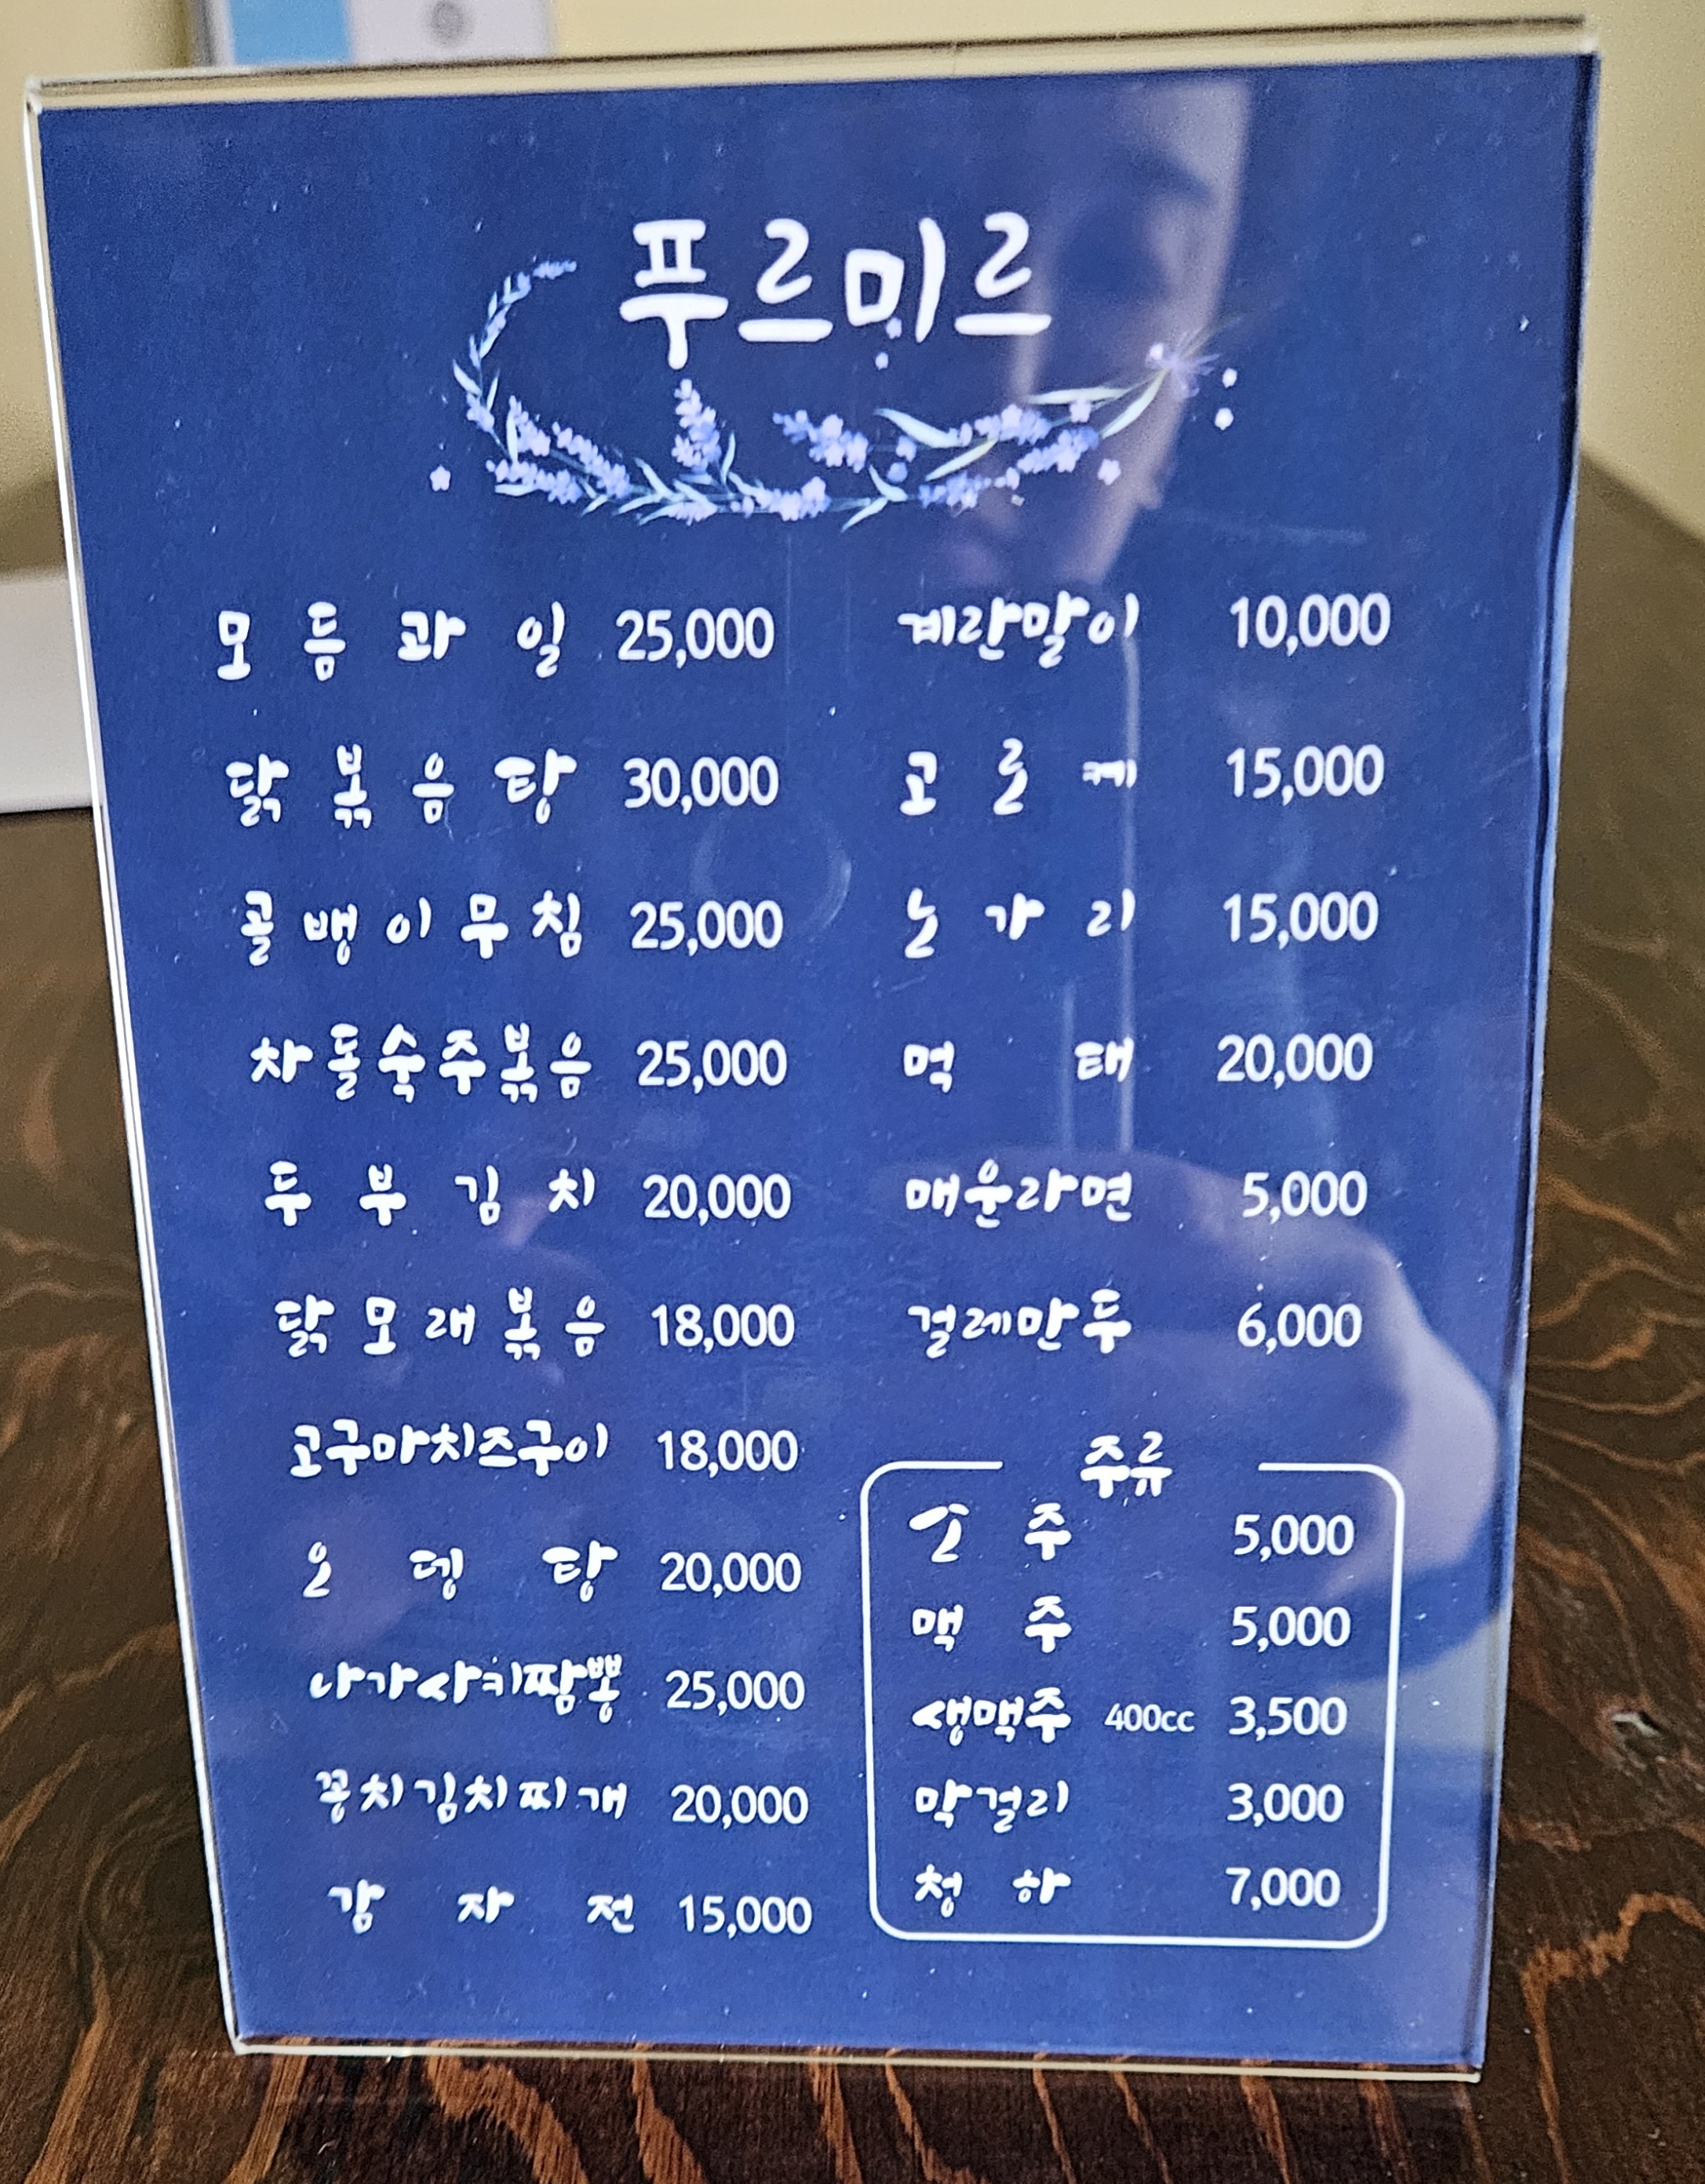 푸르미르
모듬과일 25,000
닭볶음탕 30,000
골뱅이무침 25,000
차돌숙주볶음 25,000
두부김치 20,000
닭모래볶음 18,000
고구마치즈구이 18,000
오뎅탕 20,000
나가사키짬뽕 25,000
꽁치김치찌개 20,000
감자전 15,000
계란말이 10,000
고로케 15,000
노가리 15,000
먹태 20,000
매운라면 5,000
걸레만두 6,000
주류
소주 5,000
맥주 5,000
생맥주 400cc 3,500
막걸리 3,000
청하 7,000